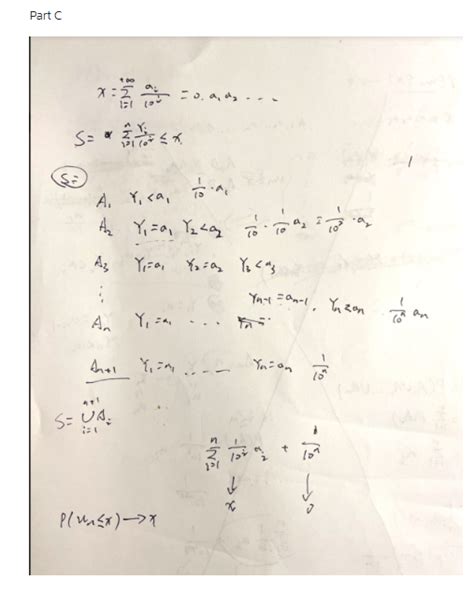 Part C
x = ∑_{i=1}^{+∞} a_i/10^i = 0.a₁a₂...
S = ∑_{i=1}^{n} Y_i/10^i ≤ x
S =
A₁ Y₁<a₁ 1/10·a₁
A₂ Y₁=a₁ Y₂<a₂ 1/10·1/10 a₂ = 1/10²·a₂
A₃ Y₁=a₁ Y₂=a₂ Y₃<a₃
⋮
Aₙ Y₁=a₁ ... Yₙ₋₁=aₙ₋₁, Yₙ<aₙ 1/10ⁿ aₙ
Aₙ₊₁ Y₁=a₁ ..... Yₙ=aₙ 1/10ⁿ
S = ⋃_{i=1}^{n+1} A_i
∑_{i=1}^{n} 1/10^i a_i + 1/10ⁿ
↓ ↓
x 0
P(uₙ≤x)→x